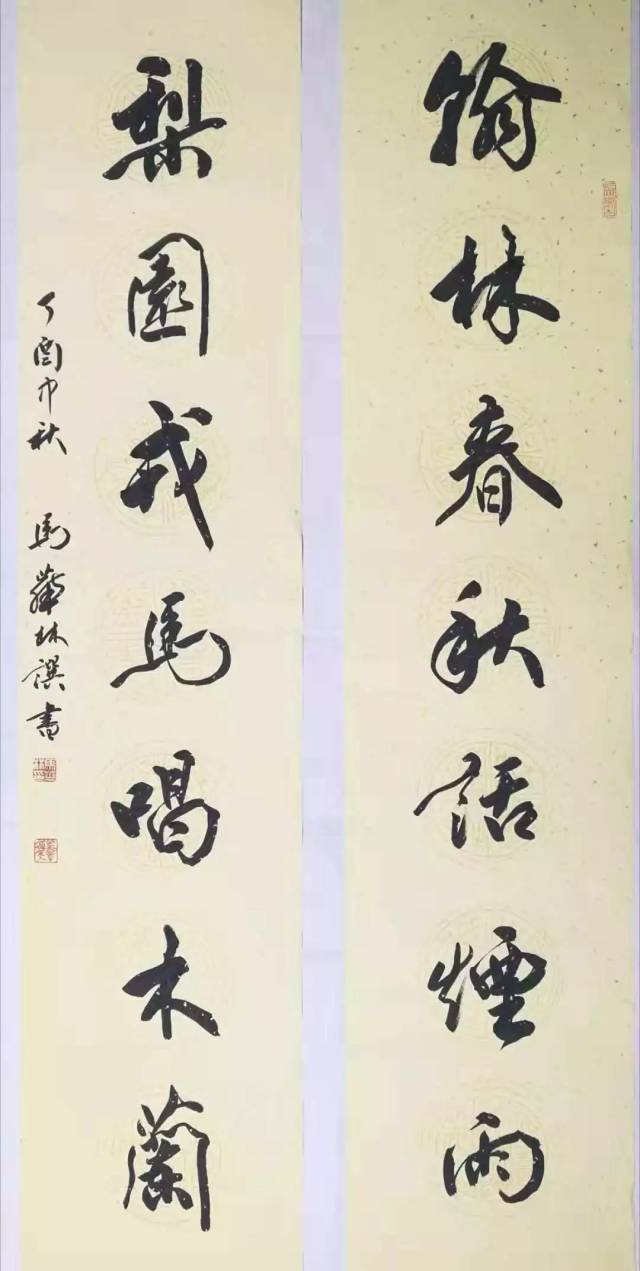 翰林春秋話煙雨
梨園戎馬唱木蘭
丁酉中秋 馬華林譔書